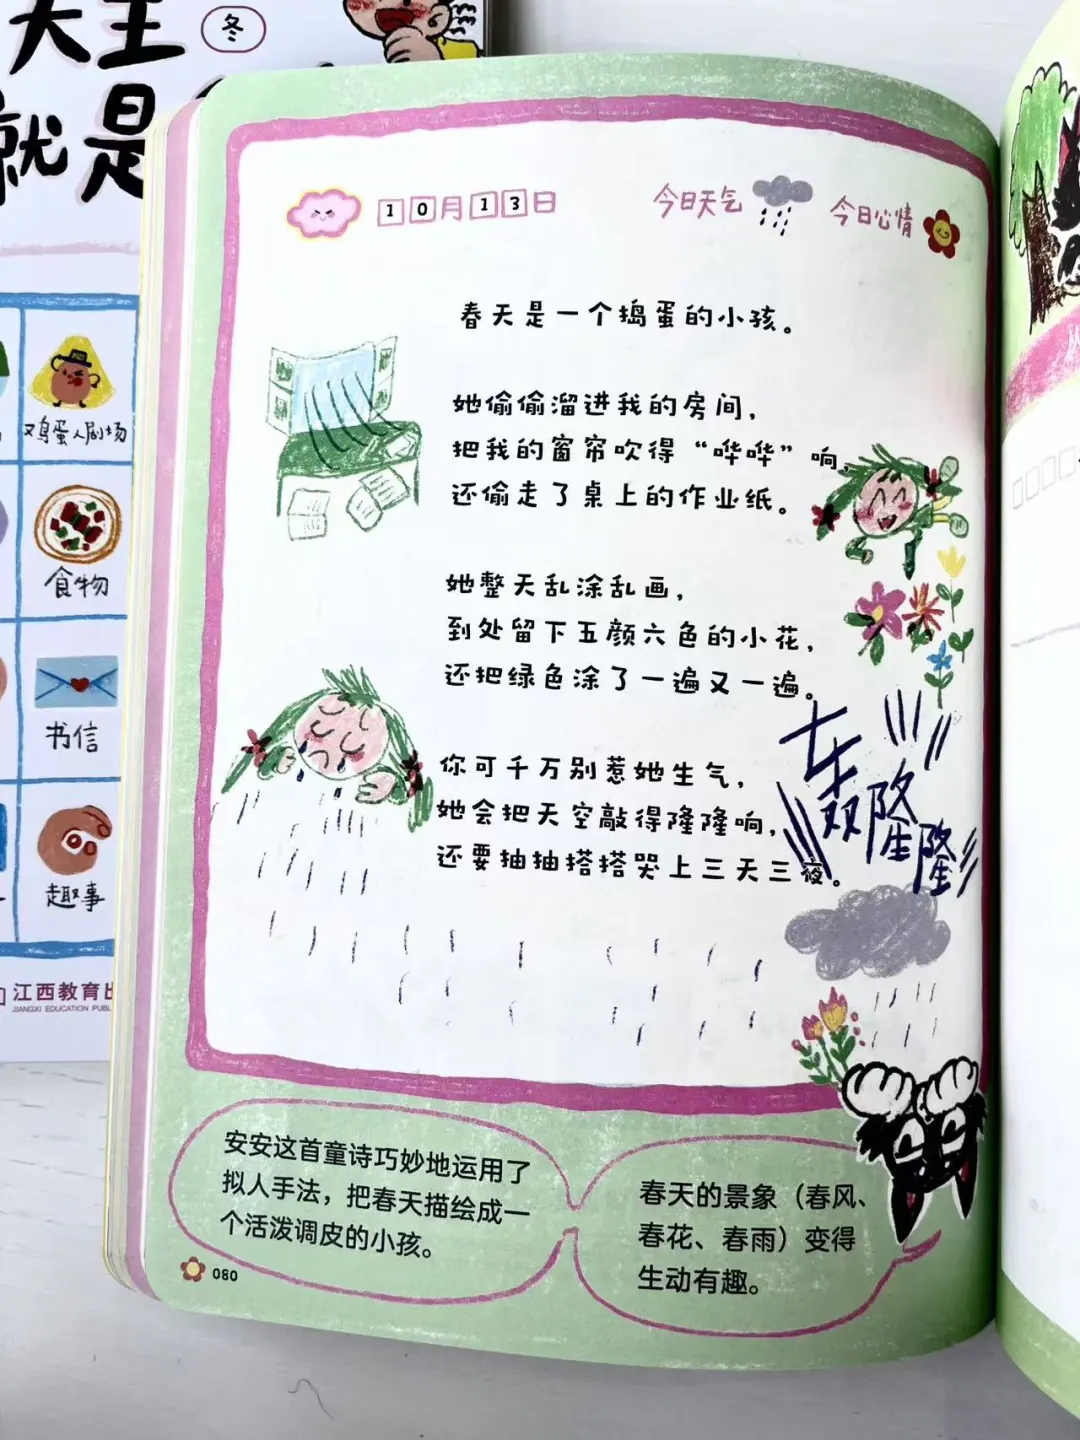 天王
冬
就是
鸡蛋人剧场
食物
书信
趣事
江西教育出
JIANGXI EDUCATION PUBL
10月13日
今日天气
今日心情
春天是一个捣蛋的小孩。
她偷偷溜进我的房间，
把我的窗帘吹得“哗哗”响，
还偷走了桌上的作业纸。
她整天乱涂乱画，
到处留下五颜六色的小花，
还把绿色涂了一遍又一遍。
你可千万别惹她生气，
她会把天空敲得隆隆响，
还要抽抽搭搭哭上三天三夜。
轰隆隆
安安这首童诗巧妙地运用了
拟人手法，把春天描绘成一
个活泼调皮的小孩。
春天的景象（春风、
春花、春雨）变得
生动有趣。
080